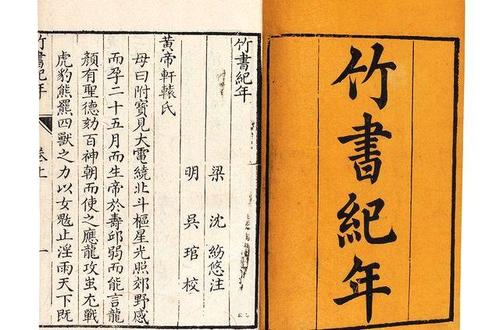 竹書紀年
竹書紀年
梁 沈約附注
明 吳琯校
黃帝軒轅氏
母曰附寶見大電繞北斗樞星光照郊野感
而孕二十五月而生帝於壽邱弱而能言龍
顏有聖德劾百神朝而使之應龍攻蚩尤戰
虎豹熊羆四獸之力以女魃止淫雨天下既
竹書紀年 卷上 一